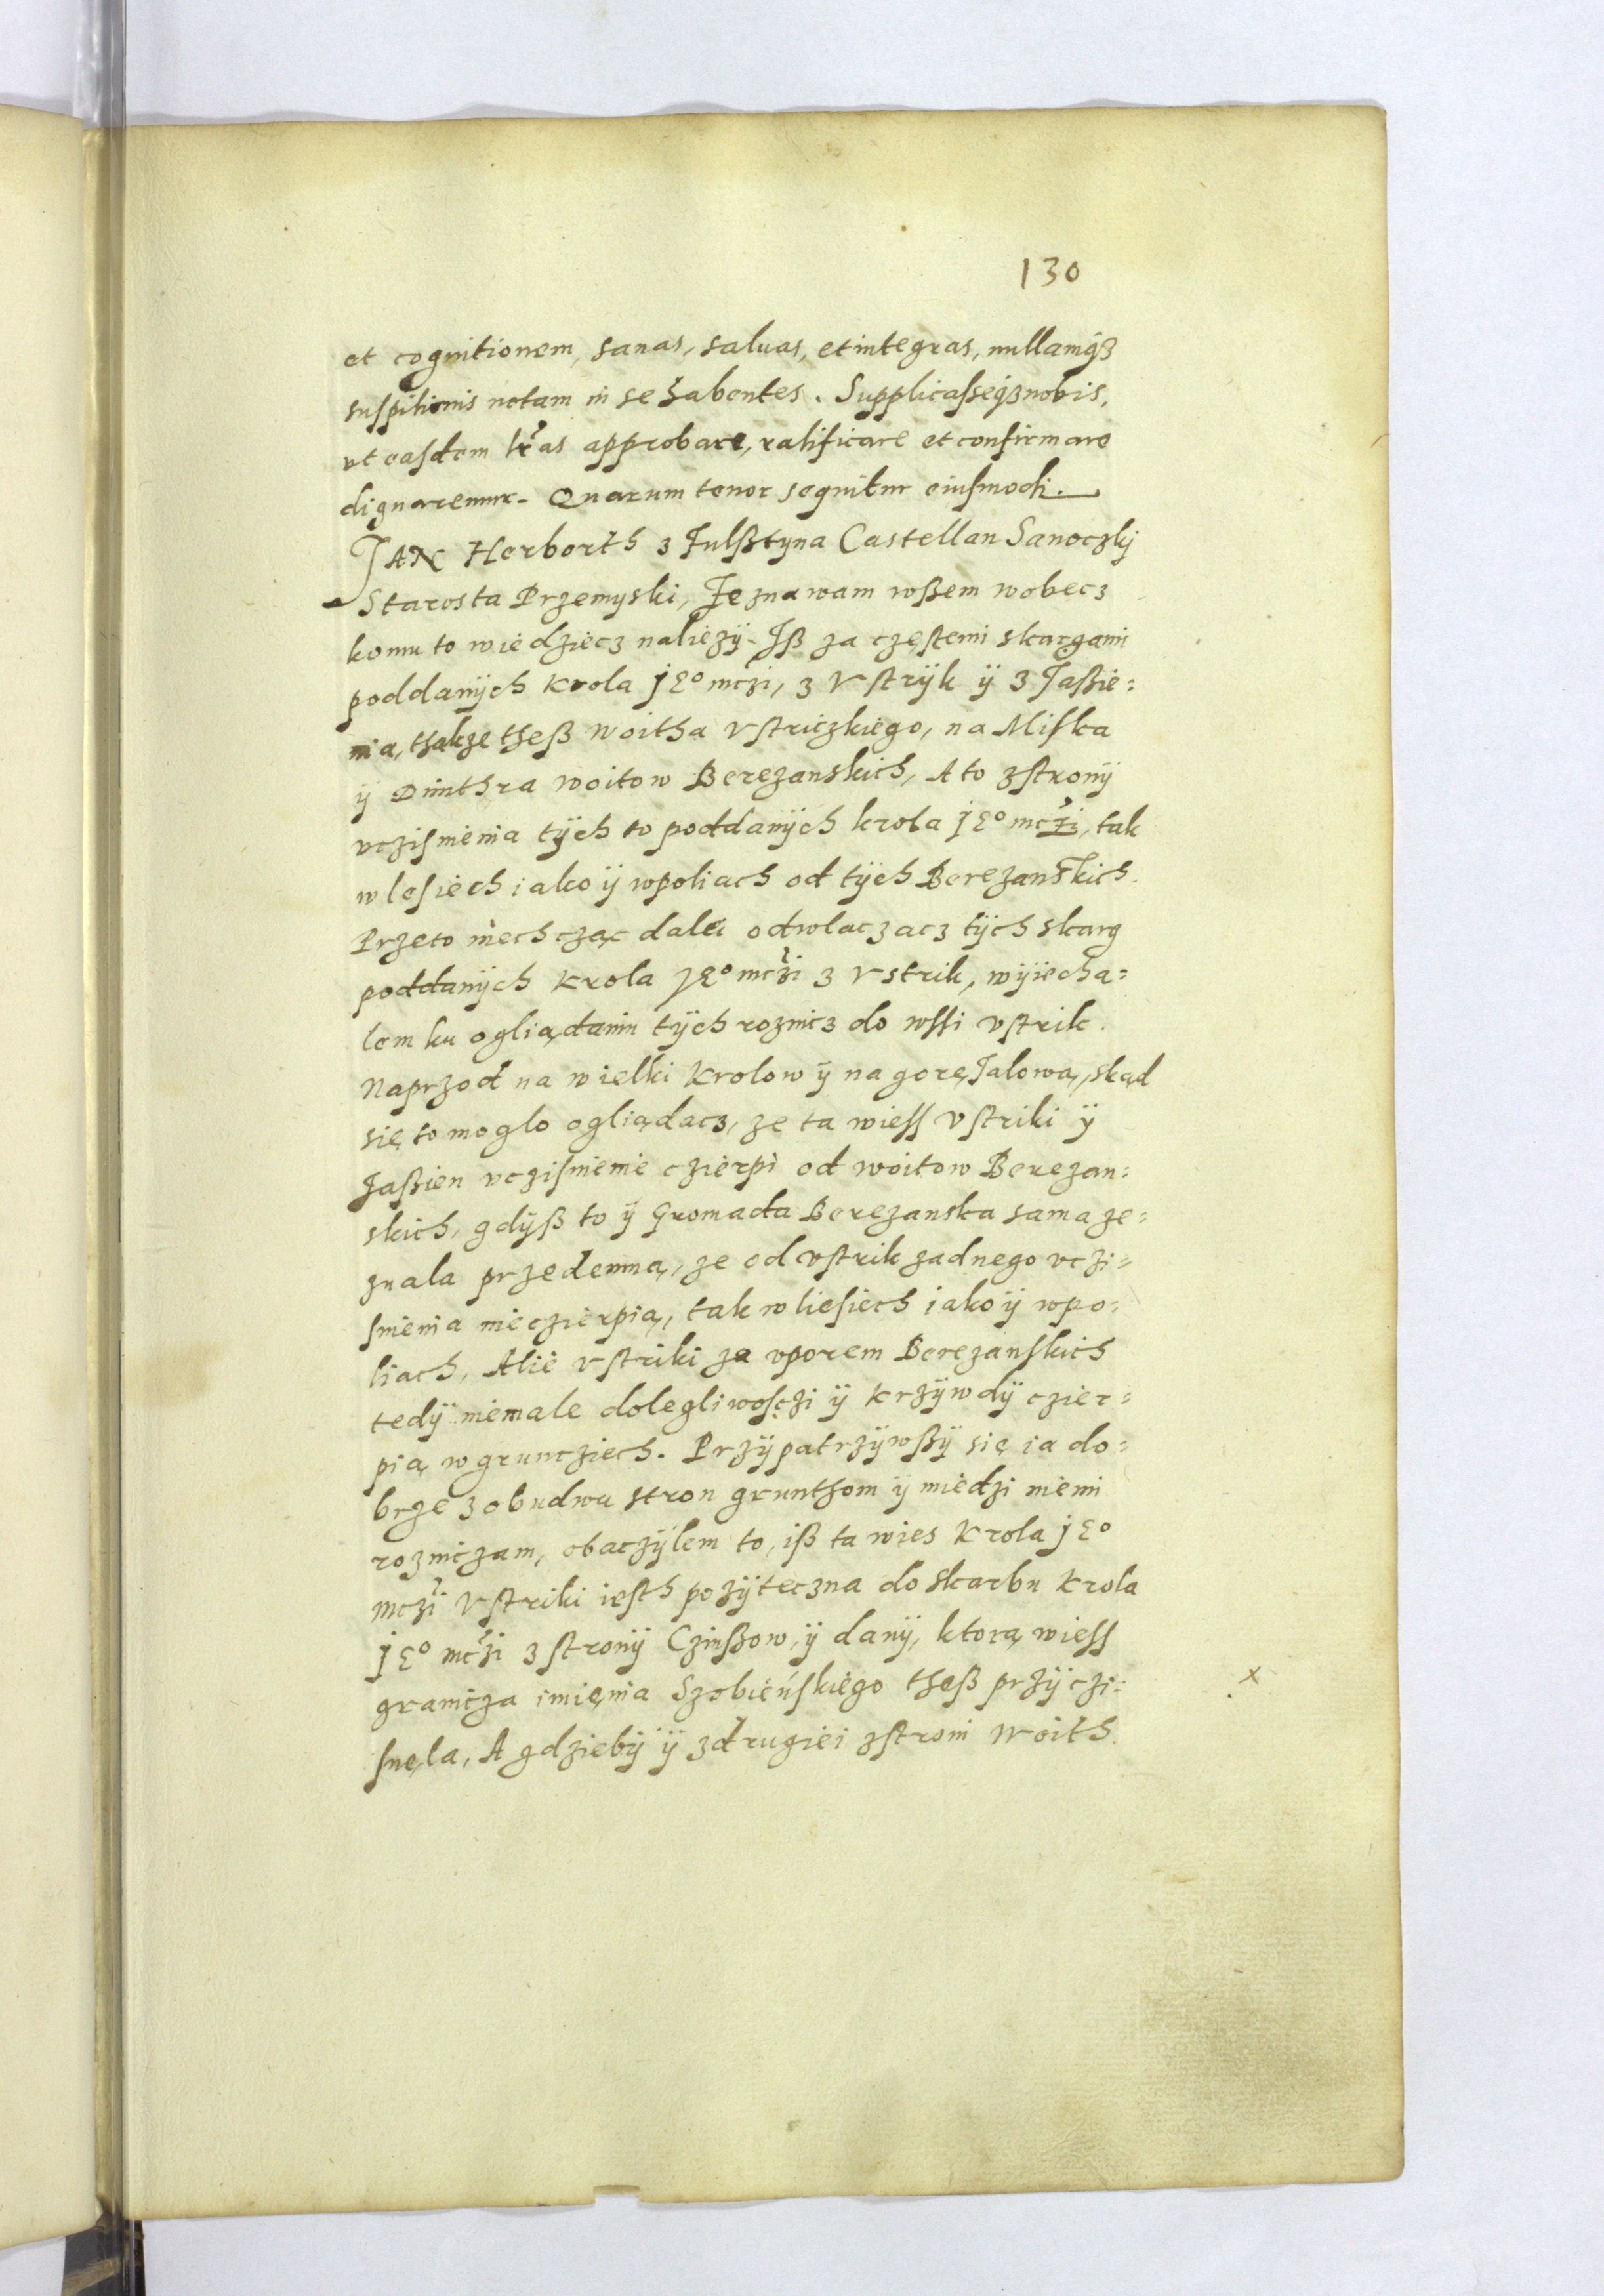 130
et cognitionem, sanas, saluas, et integras, nullamqꝫ
suspitionis notam in se habentes. Supplicasseqꝫ nobis,
vt easdem lr̃as approbare, ratificare et confirmare
dignaremur. Quarum tenor sequitur eiusmodi.
JAN Herborth z Fulßtyna Castellan Sanoczkj
Starosta Przemyski, Zeznawam wßem wobecz
komu to wiedziecz naliezÿ. Iß za częstemi skargami
poddanÿch Krola jE° mczi, z Vstrÿk ÿ z Jaßie=
nia, thakze theß woitha Vstriczkiego, na Miska
ÿ Dimthra woitow Berezanskich, A to z stronÿ
vczisnienia tÿch to poddanÿch krola jE° mczi, tak
w lesiech iako ÿ w poliach od tÿch Berezanskich.
Przeto niechcząc dalei odwlaczacz tÿch skarg
poddanÿch Krola jE° mczi z Vstrik, wÿiecha=
lem ku ogliądaniu tÿch roznicz do wssi Vstrik.
Naprzod na wielki Krolow ÿ na gorę Jalową, skąd
się to moglo ogliądacz, ze ta wiess Vstriki ÿ
Jaßien vczisnienie czierpi od woitow Berezan=
skich, gdÿß to ÿ Gromada Berezanska sama ze=
znala przedemną, ze od Vstrik zadnego vczi=
snienia nie czierpią, tak w liesiech iako ÿ w po=
liach, Alie Vstriki za vporem Berezanskich
tedÿ niemale dolegliwosczi ÿ Krzÿwdÿ czier=
pią w grunczie​ch. Przÿpatrzÿwßÿ się ia do=
brze z obudwu stron grunthom ÿ miedzi niemi
rozniczam, obaczÿlem to, iß ta wies Krola jE°
mczi Vstriki iesth pozÿteczna do skarbu Krola
jE° mczi z stronÿ Czinßow, ÿ danÿ, ktorą wiess
granicza imięnia Szobieńskiego theß przÿczi=
snęla, A gdziebÿ ÿ z drugiei zstroni Woith
x